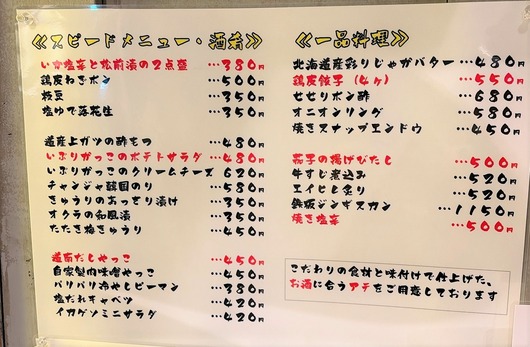 ≪スピードメニュー・酒肴≫
いか塩辛と松前漬の2点盛 …380円
鶏皮ねぎポン …500円
枝豆 …350円
塩ゆで落花生 …350円
道産上ガツの酢もつ …480円
いぶりがっこのポテトサラダ …480円
いぶりがっこのクリームチーズ 620円
チャンジャ韓国のり …580円
きゅうりのあっさり漬け …350円
オクラの和風漬 …350円
たたき梅きゅうり …450円
道南だしやっこ …450円
自家製肉味噌やっこ …450円
パリパリ冷やしピーマン …380円
塩だれキャベツ …420円
イカゲソミニサラダ …420円
≪一品料理≫
北海道産彩りじゃがバター …480円
鶏皮餃子(4ヶ) …550円
せせりポン酢 …680円
オニオンリング …580円
焼きスナップエンドウ …450円
茄子の揚げびたし …500円
牛すじ煮込み …520円
エイひれ炙り …520円
鉄板ジンギスカン …1150円
焼き塩辛 …500円
こだわりの食材と味付けで仕上げた、
お酒に合うアテをご用意しております